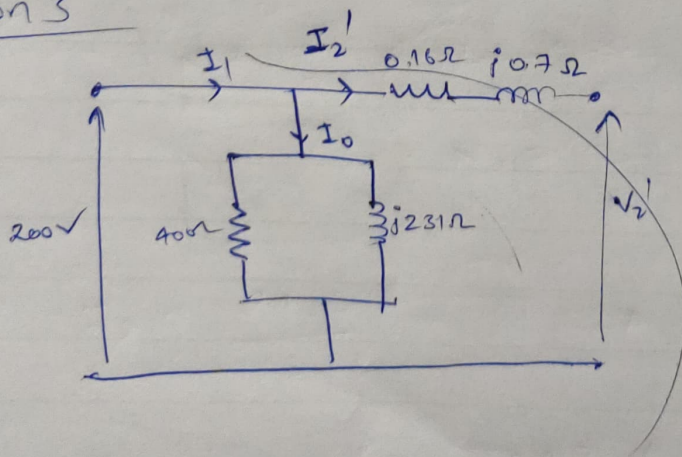 on 5
I₁
I₂'
0.16Ω
j0.7Ω
I₀
200V
400Ω
j231Ω
V₂'